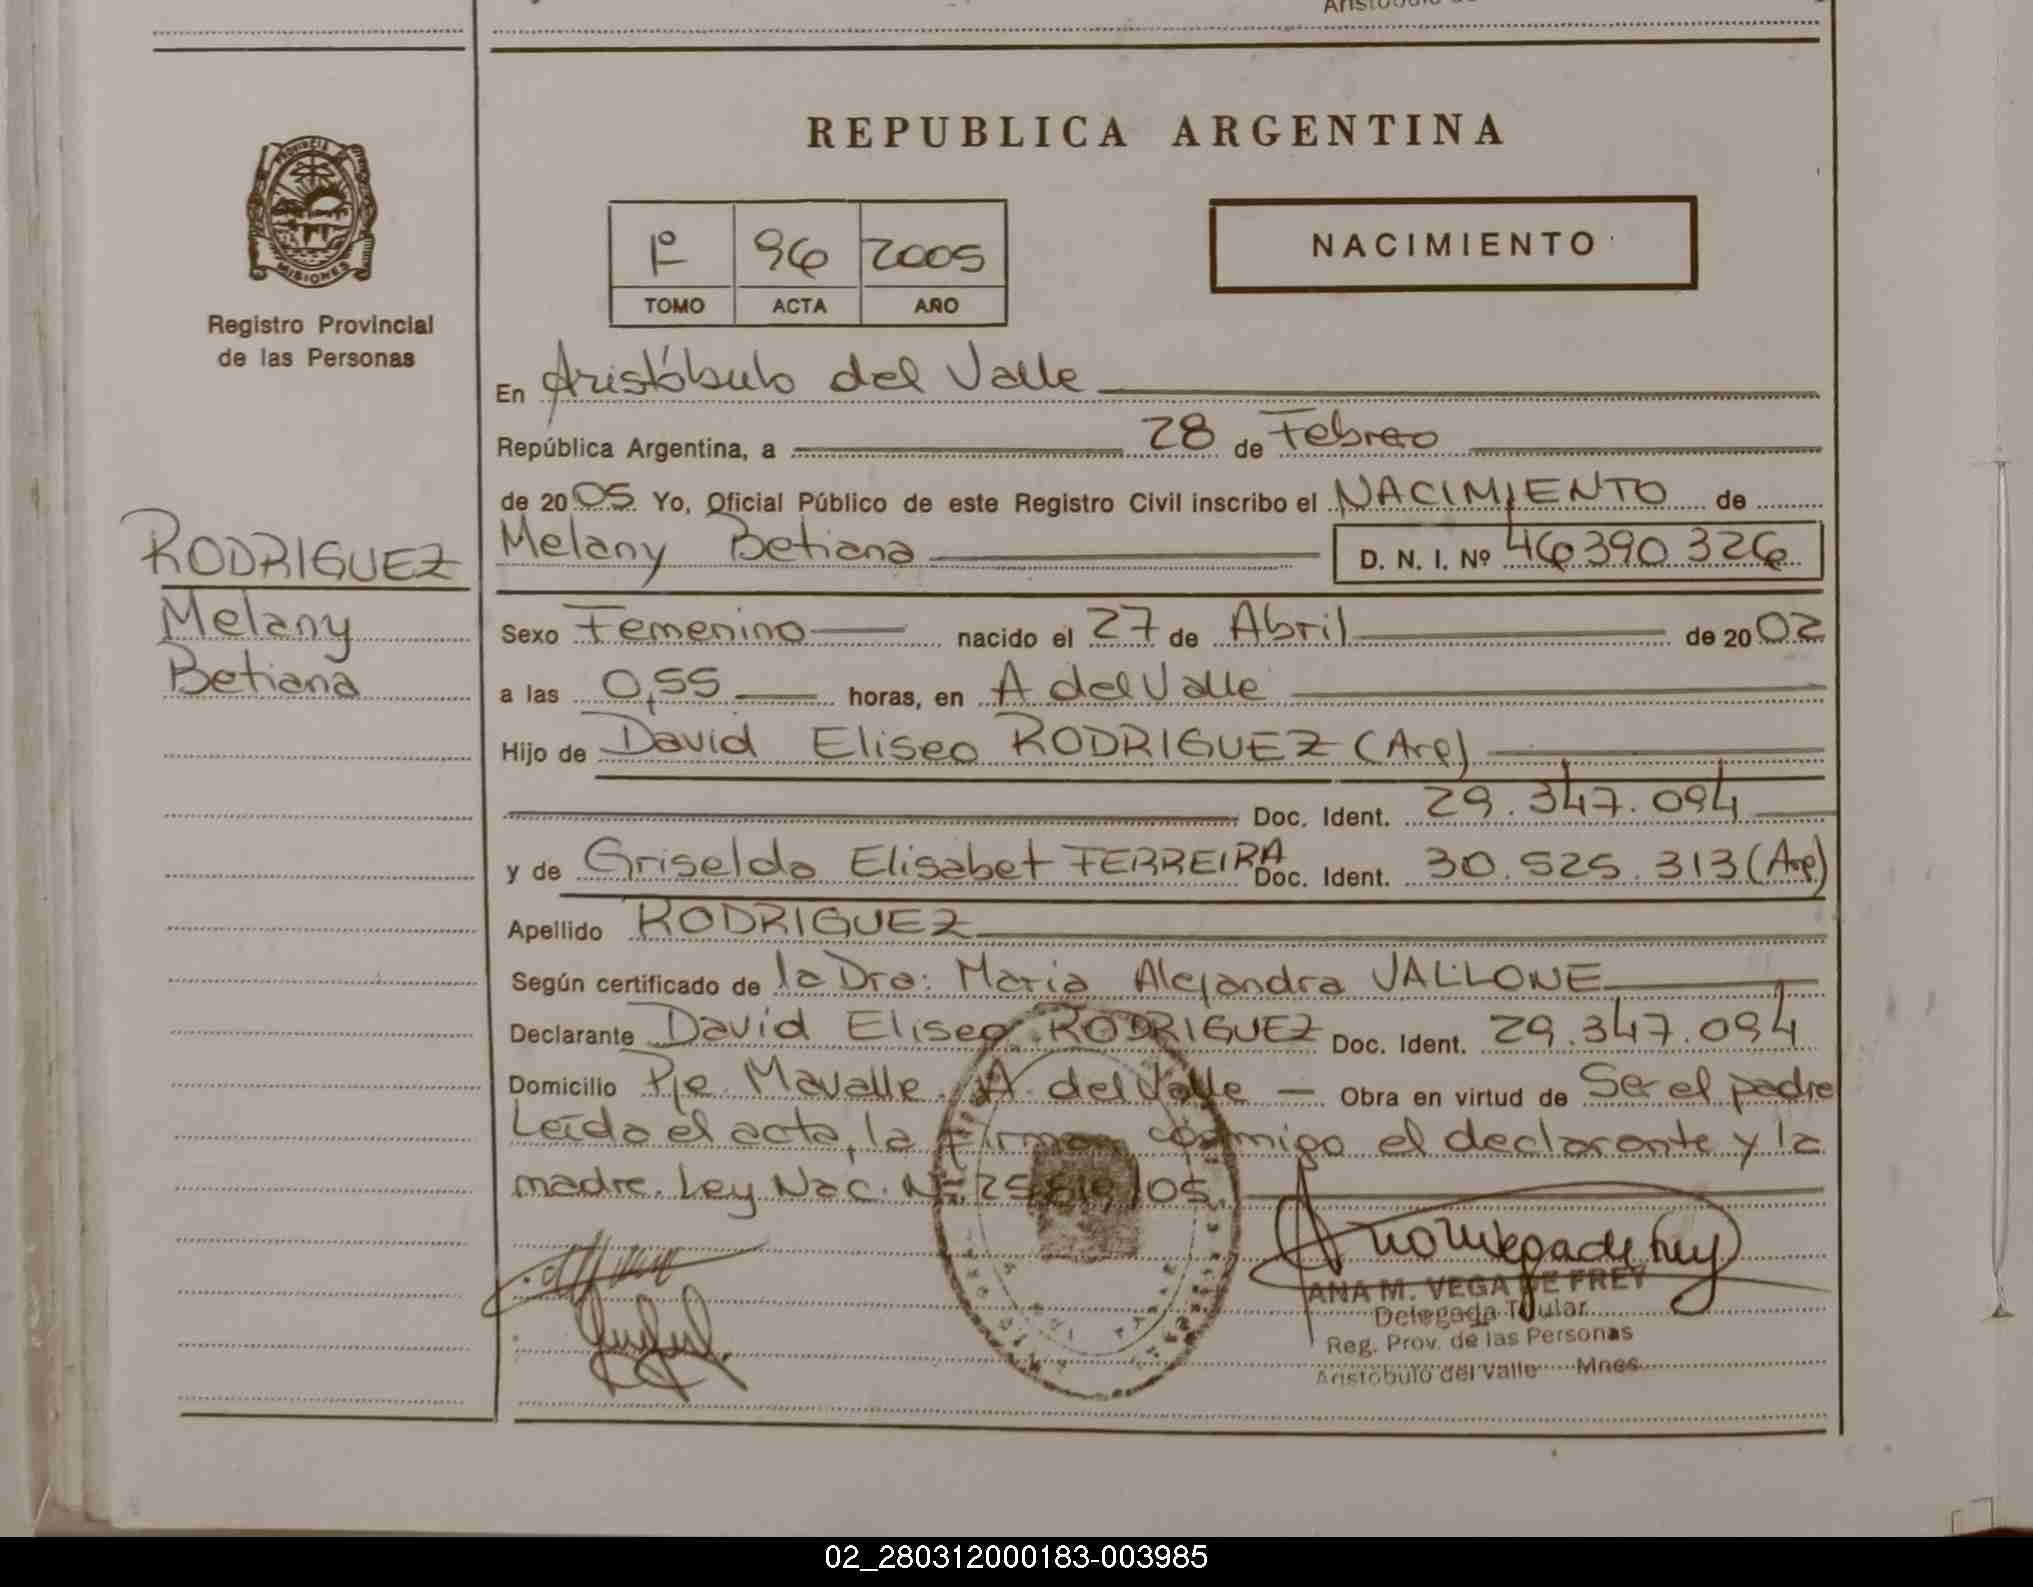 REPUBLICA ARGENTINA
PROVINCIA DE
MISIONES
Registro Provincial
de las Personas
1º 96 2005
TOMO ACTA AÑO
NACIMIENTO
En Aristóbulo del Valle
República Argentina, a 28 de Febrero
de 2005 Yo, Oficial Público de este Registro Civil inscribo el NACIMIENTO de
Melany Betiana D. N. I. Nº 46390326
RODRIGUEZ
Melany
Betiana
Sexo Femenino nacido el 27 de Abril de 2002
a las 0,55 horas, en A del Valle
Hijo de David Eliseo RODRIGUEZ (Arg)
Doc. Ident. 29.347.094
y de Griselda Elisabet FERREIRA Doc. Ident. 30.525.313 (Arg)
Apellido RODRIGUEZ
Según certificado de la Dra: Maria Alejandra VALLONE
Declarante David Eliseo RODRIGUEZ Doc. Ident. 29.347.094
Domicilio Pje. Mavalle. A. del Valle — Obra en virtud de Ser el padre
Leída el acta, la firman conmigo el declarante y la
madre. Ley Nac. Nº 25819/05.
ANA M. VEGA DE FREY
Delegada Titular
Reg. Prov. de las Personas
Aristóbulo del Valle Mnes.
02_280312000183-003985